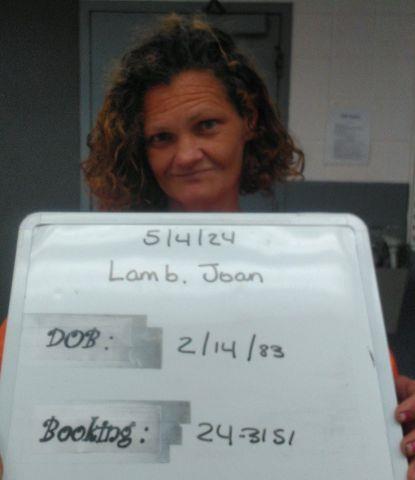 5/4/24
Lamb. Joan
DOB: 2/14/83
Booking: 24-3151